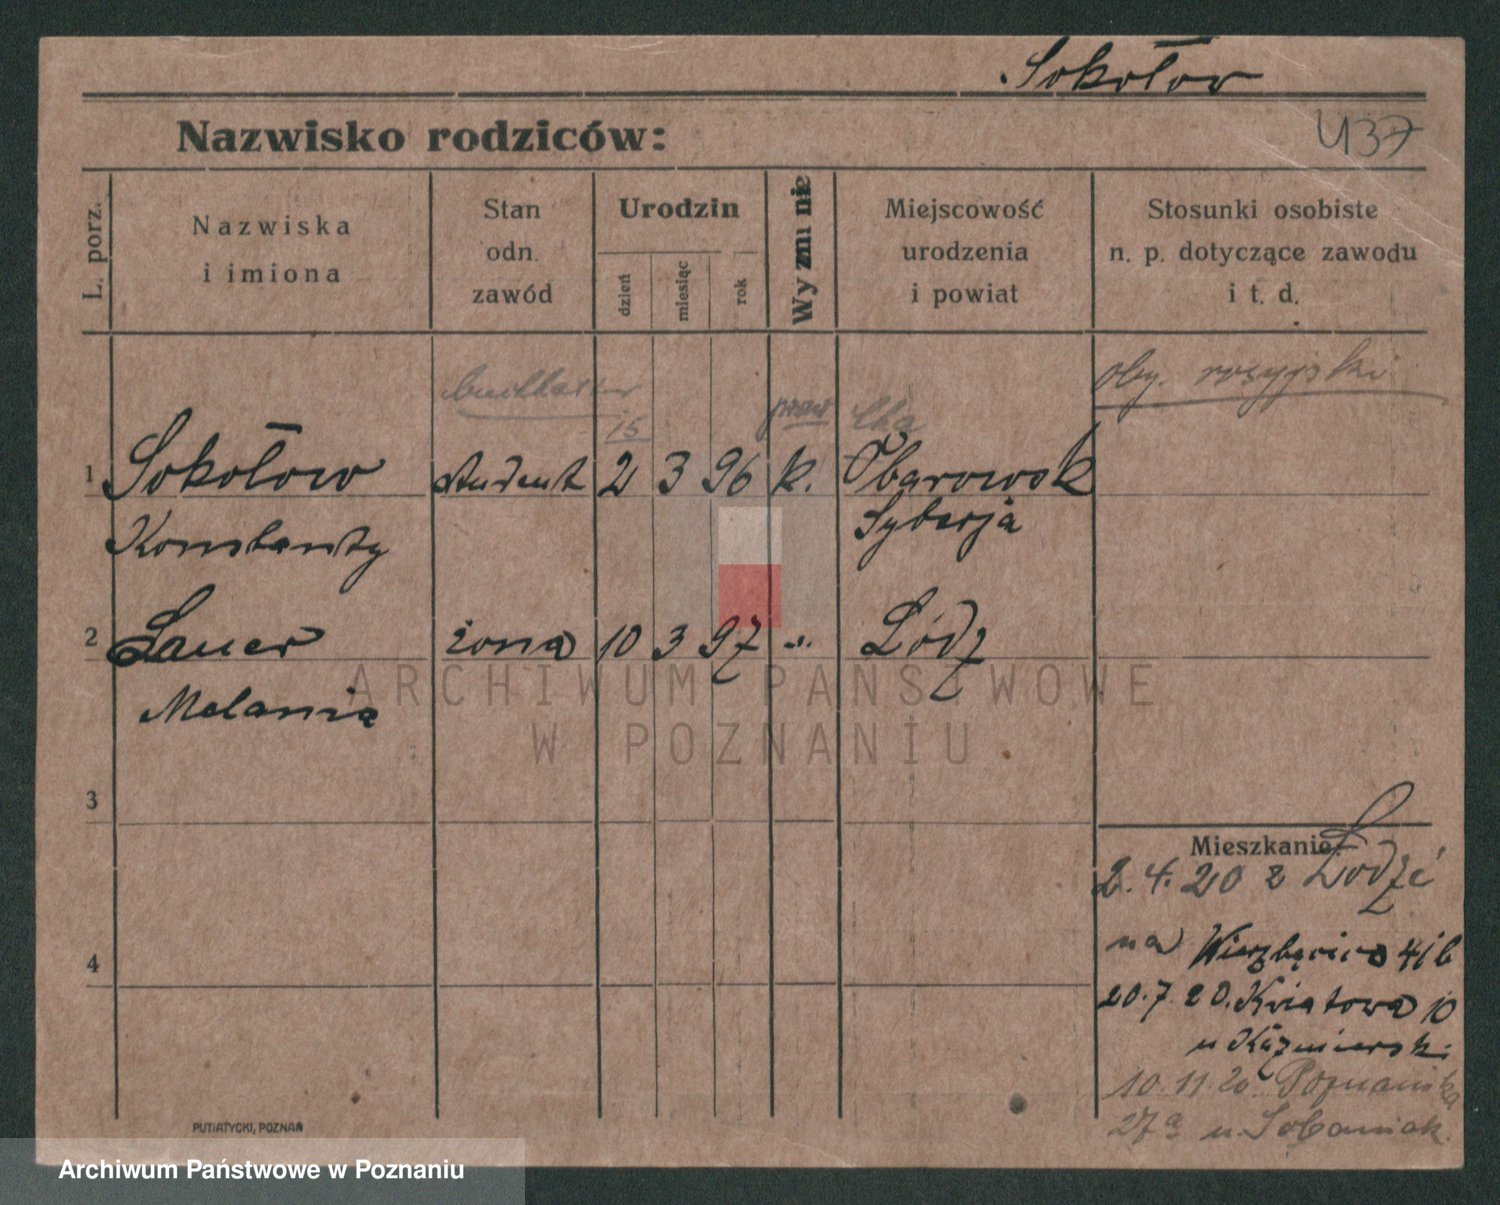 Sokołow
Nazwisko rodziców:
437
L. porz.
Nazwiska
i imiona
Stan
odn.
zawód
Urodzin
dzień
miesiąc
rok
Wyznanie
Miejscowość
urodzenia
i powiat
Stosunki osobiste
n. p. dotyczące zawodu
i t. d.
buchhalter
15
praw
oby. rosyjski
1 Sokołow student 2 3 96 k. Obarowsk
Konstanty Syberja
2 Lauer żona 10 3 97 „ Łódź
Melania
3
4
Mieszkanie:
2.4.20 z Łodzi
na Wierzbięcice 41b
20.7.20. Kwiatowa 10
u Kaźmierski
10.11.20 Poznańska
27a u. Sobaniak.
PUTIATYCKI, POZNAŃ
ARCHIWUM PAŃSTWOWE
W POZNANIU
Archiwum Państwowe w Poznaniu